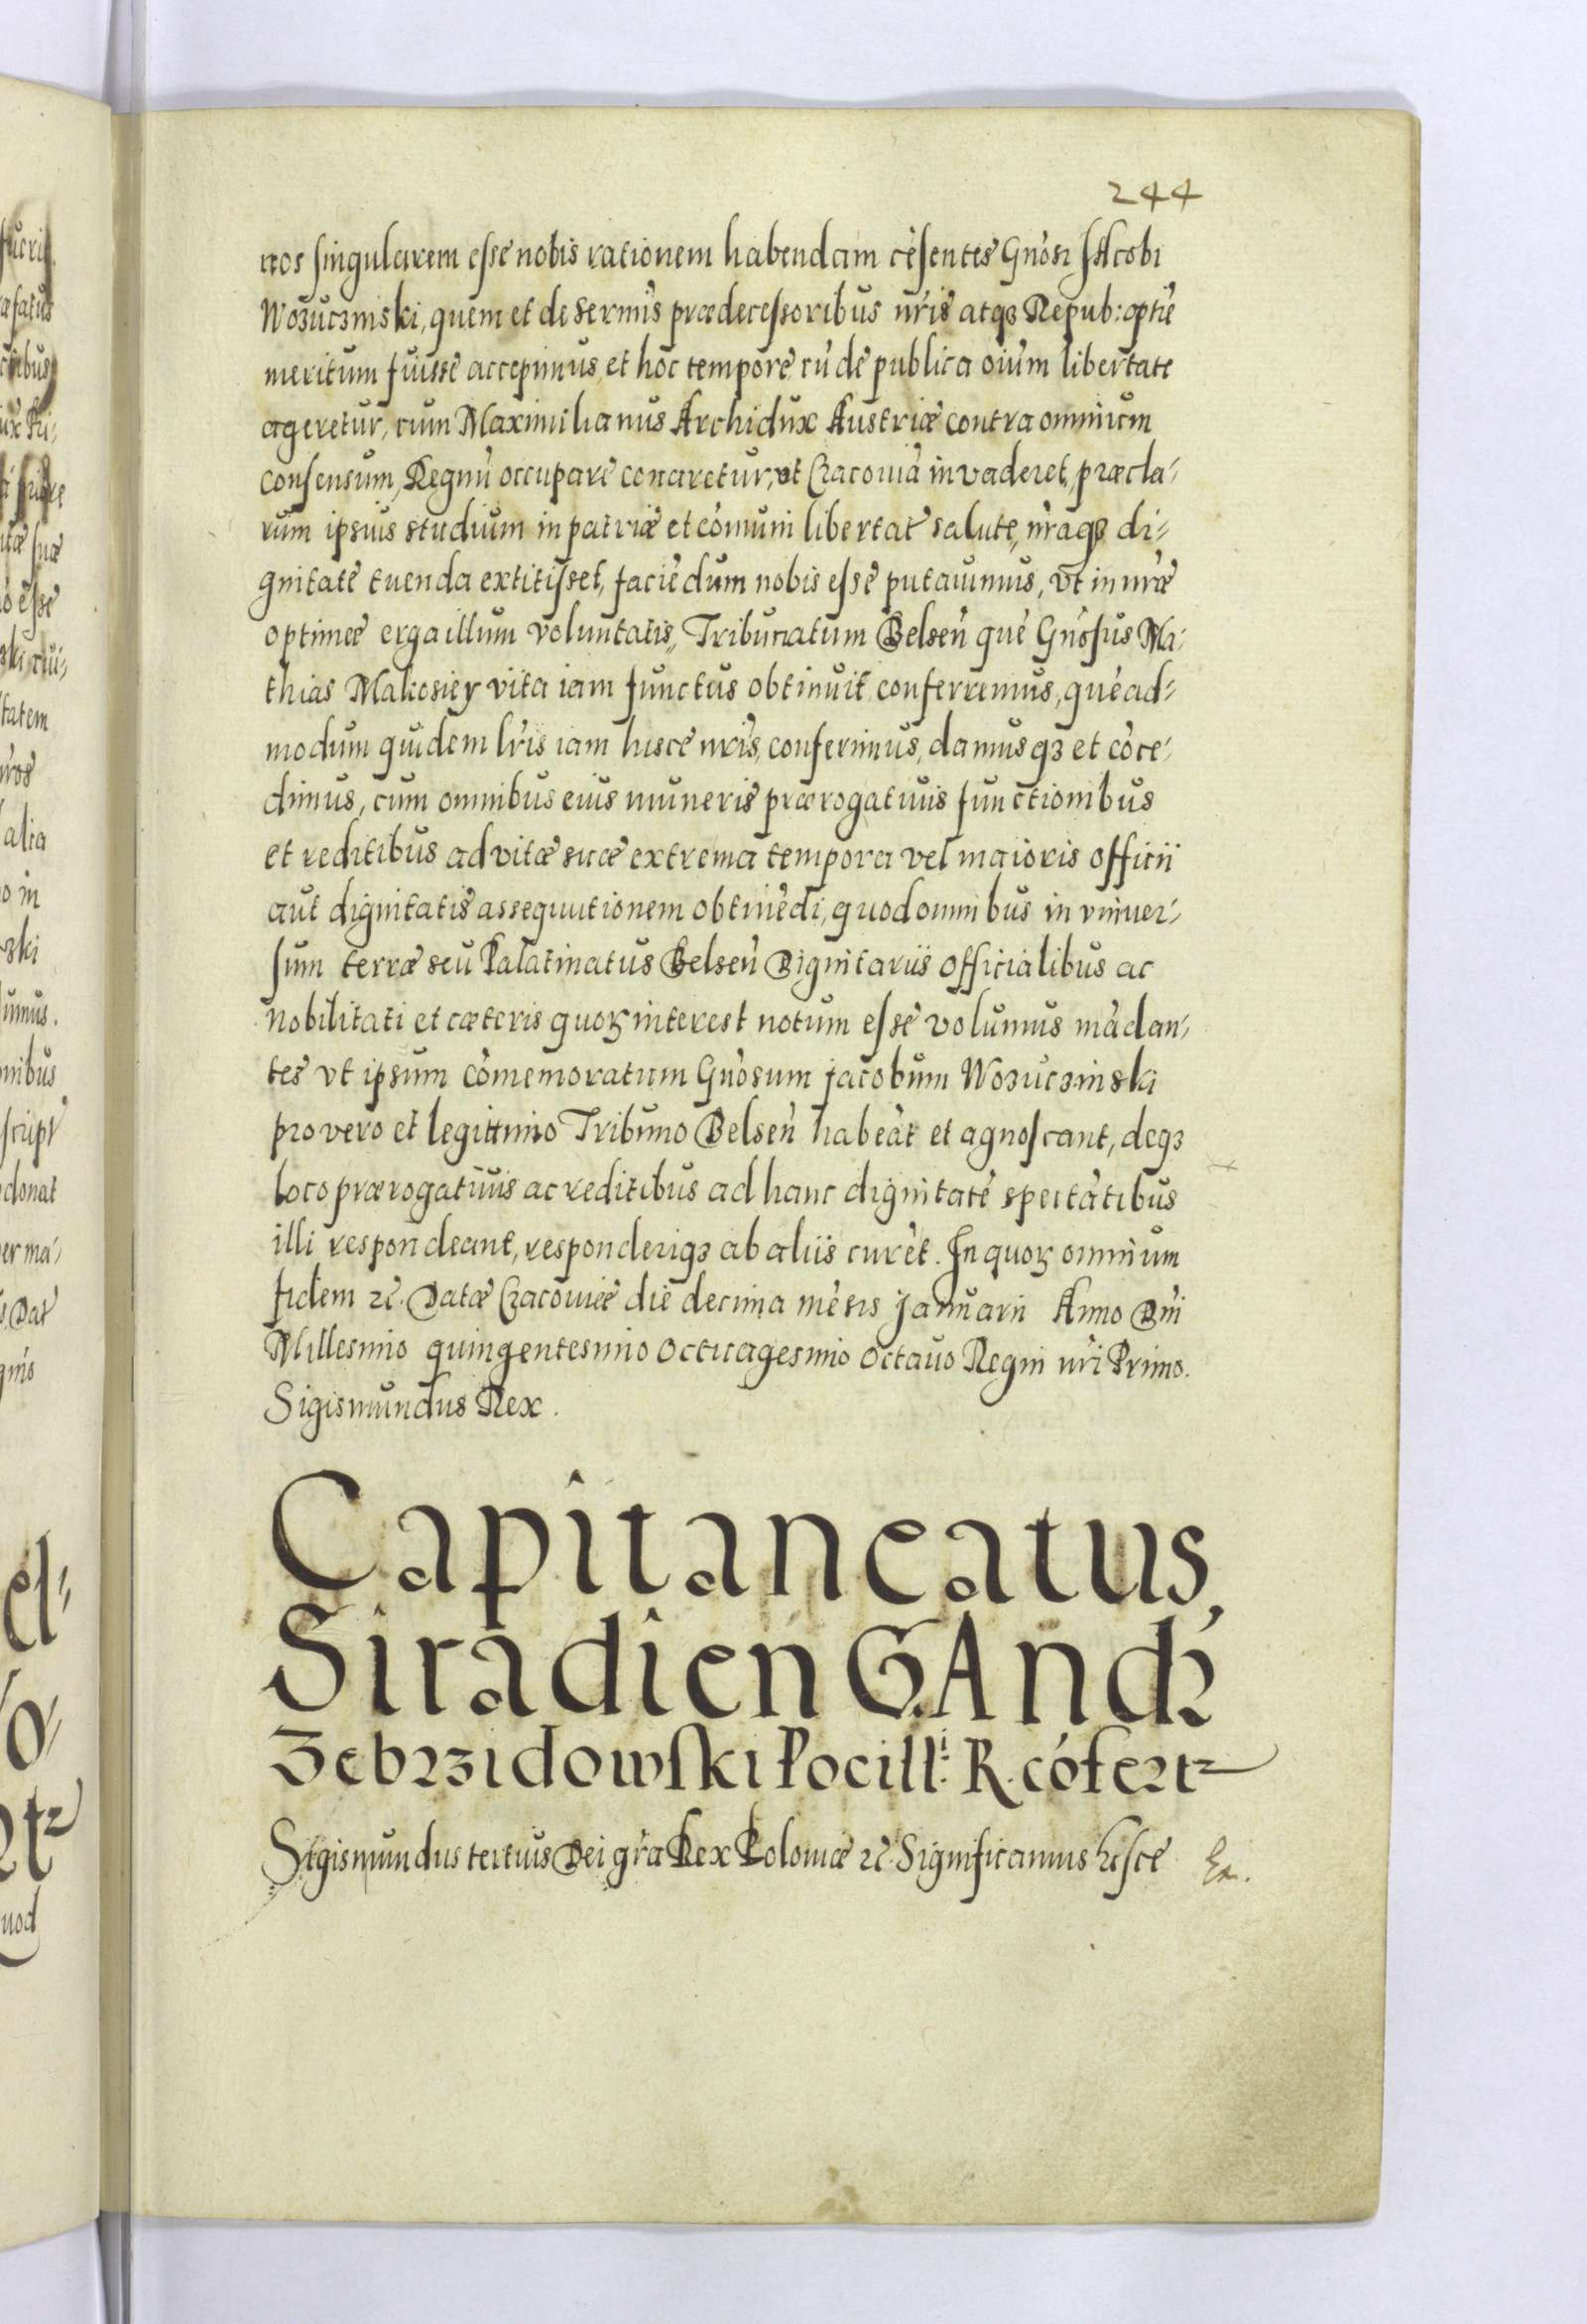 244
nos singularem esse nobis rationem habendam cēsentes Gnosi Jacobi
Wozuczinski, quem et de sermis prædecessoribus nris atq3 Repub: optīe
meritum fuisse accepimus, et hoc tempore cū de publica oium libertate
ageretur, cum Maximilianus Archidux Austriæ contra omnium
consensum, Regnū occupare conaretur, et Cracoviā invaderet, præcla-
rum ipsius studium in patriæ et cōmuni libertat salute, nraq3 di-
gnitate tuenda extitisset, faciēdum nobis esse putavimus, vt in nræ
optimæ erga illum voluntatis, Tribunatum Belsen quē Gnosus Ma-
thias Makosiey vita iam functus obtinuit conferremus, quēad-
modum quidem lris iam hisce nris, conferimus, damus q3 et cōce-
dimus, cum omnibus eius muneris prærogativis functionibus
et reditibus ad vitæ suæ extrema tempora vel maioris officii
aut dignitatis assequutionem obtinēdi, quod omnibus in vniver-
sum terræ seu Palatinatus Belsen Dignitariis officialibus ac
nobilitati et cæteris quoꝝ interest notum esse volumus mādan-
tes vt ipsum cōmemoratum Gnosum Jacobum Wozuczinski
pro vero et legittimo Tribuno Belsen habeāt et agnoscant, deq3
loco prærogativis ac reditibus ad hanc dignitatē spectātibus
illi respondeant, responderiq3 ab aliis curēt. In quoꝝ omnium
fidem 2c. Datæ Cracoviæ die decima mēsis Januarii Anno Dni
Millesimo quingentesimo octuagesimo octavo Regni nri Primo.
Sigismundus Rex.
Capitaneatus
Siradien G. Andr
Zebrzidowski Pocilli: R. cōfert
Sigismundus tertius Dei gra Rex Poloniæ 2c. Significamus hisce